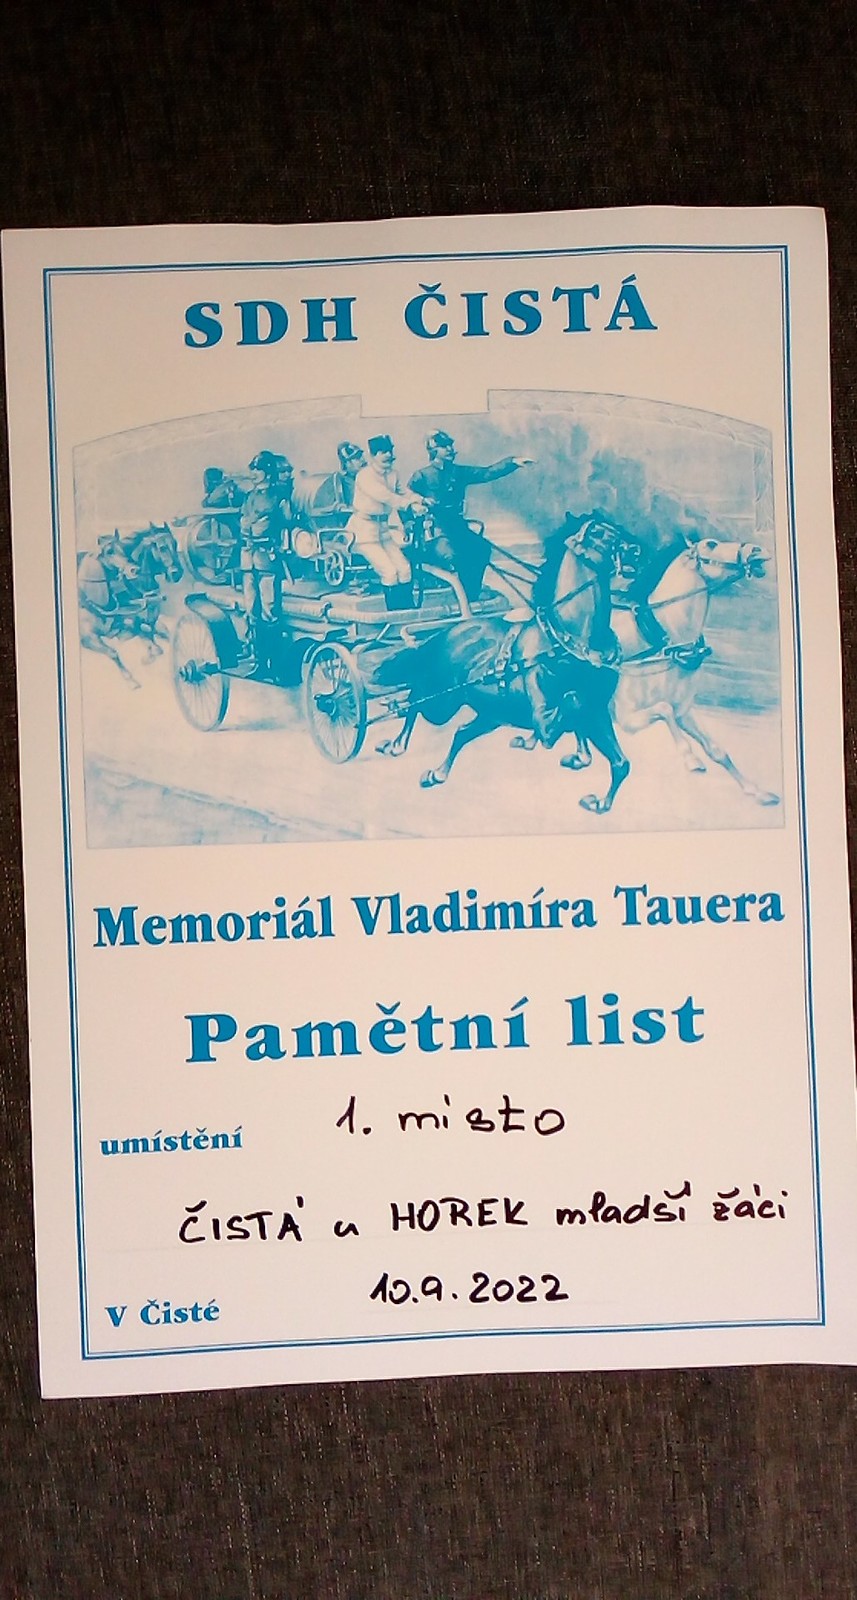 SDH ČISTÁ
Memoriál Vladimíra Tauera
Pamětní list
umístění 1. místo
ČISTÁ u HOREK mladší žáci
V Čisté 10.9.2022